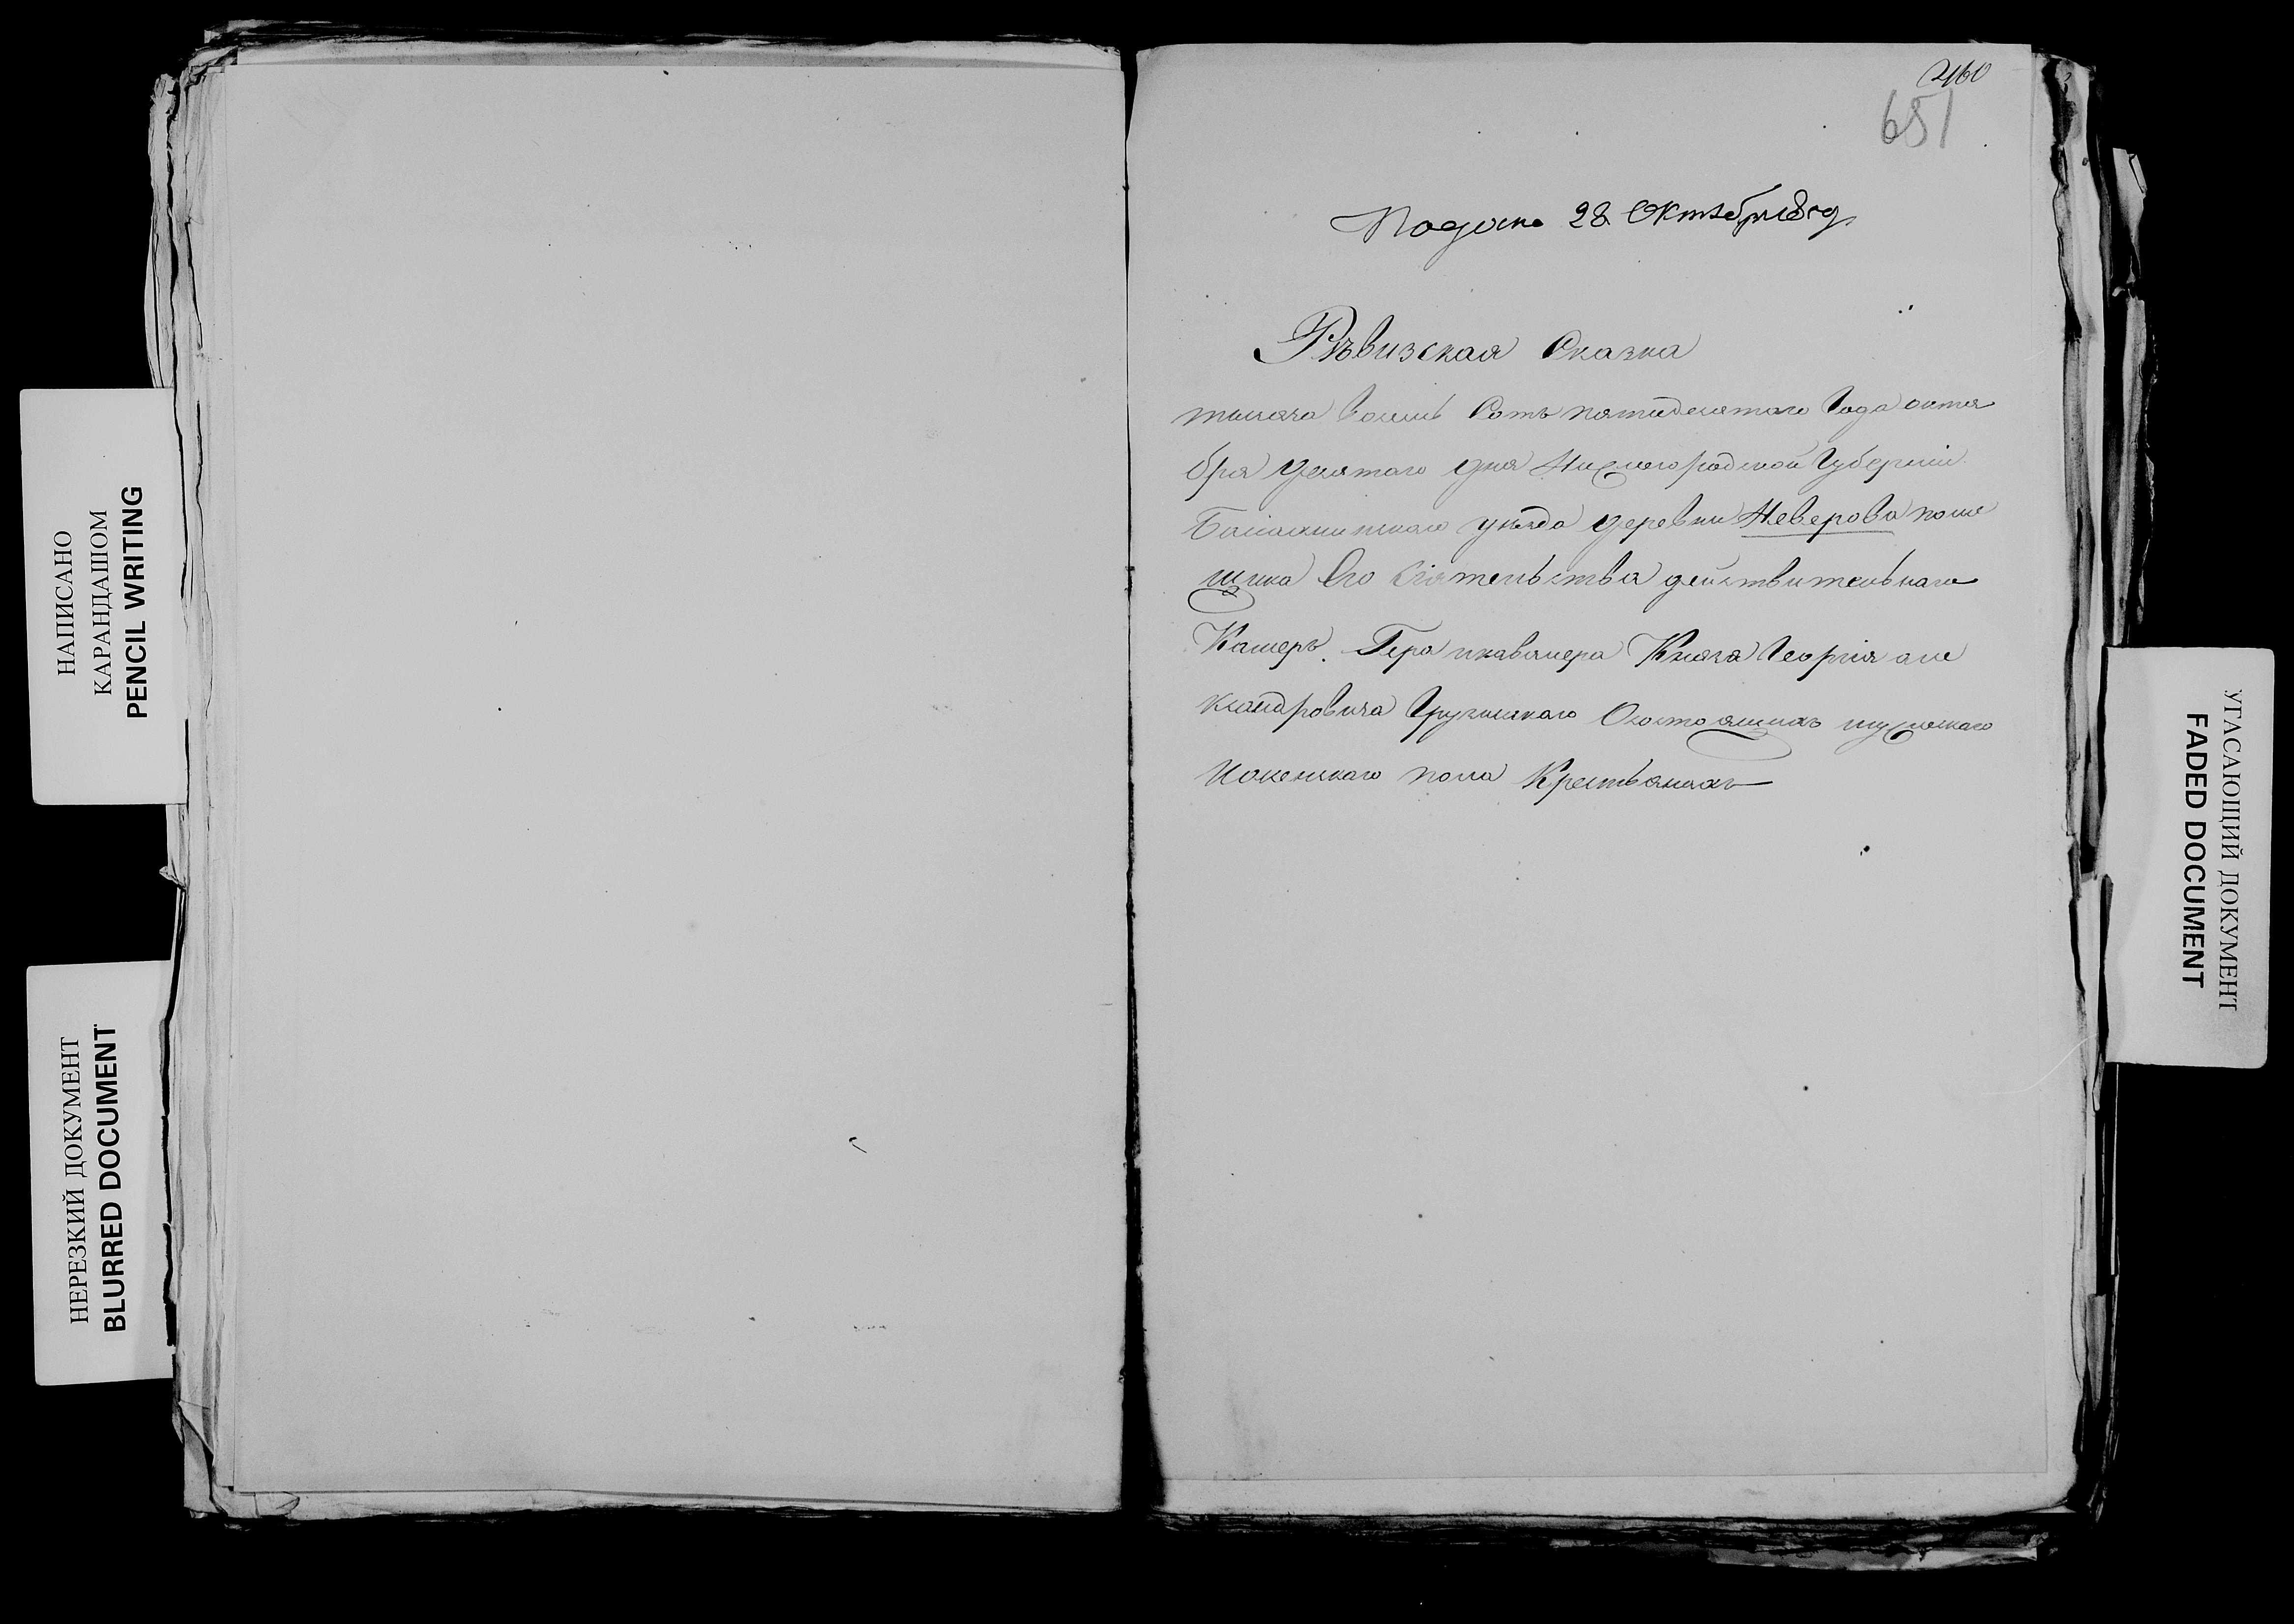 НАПИСАНО
КАРАНДАШОМ
PENCIL WRITING
НЕРЕЗКИЙ ДОКУМЕНТ
BLURRED DOCUMENT
460
651
Подана 28 Октября
Рѣвизская Сказка
тысяча восемь Сотъ пятидесятаго Года октя
бря десятаго дня Нижегородской Губерніи
Балахнинскаго уѣзда деревни Неверова поме
щика Его Сіятельства действительнаго
Камеръ. Гера икавалера Князя Георгія але
ксандровича Грузинскаго Осостоящихъ мужескаго
Иженскаго пола Крестьянахъ
УГАСАЮЩИЙ ДОКУМЕНТ
FADED DOCUMENT